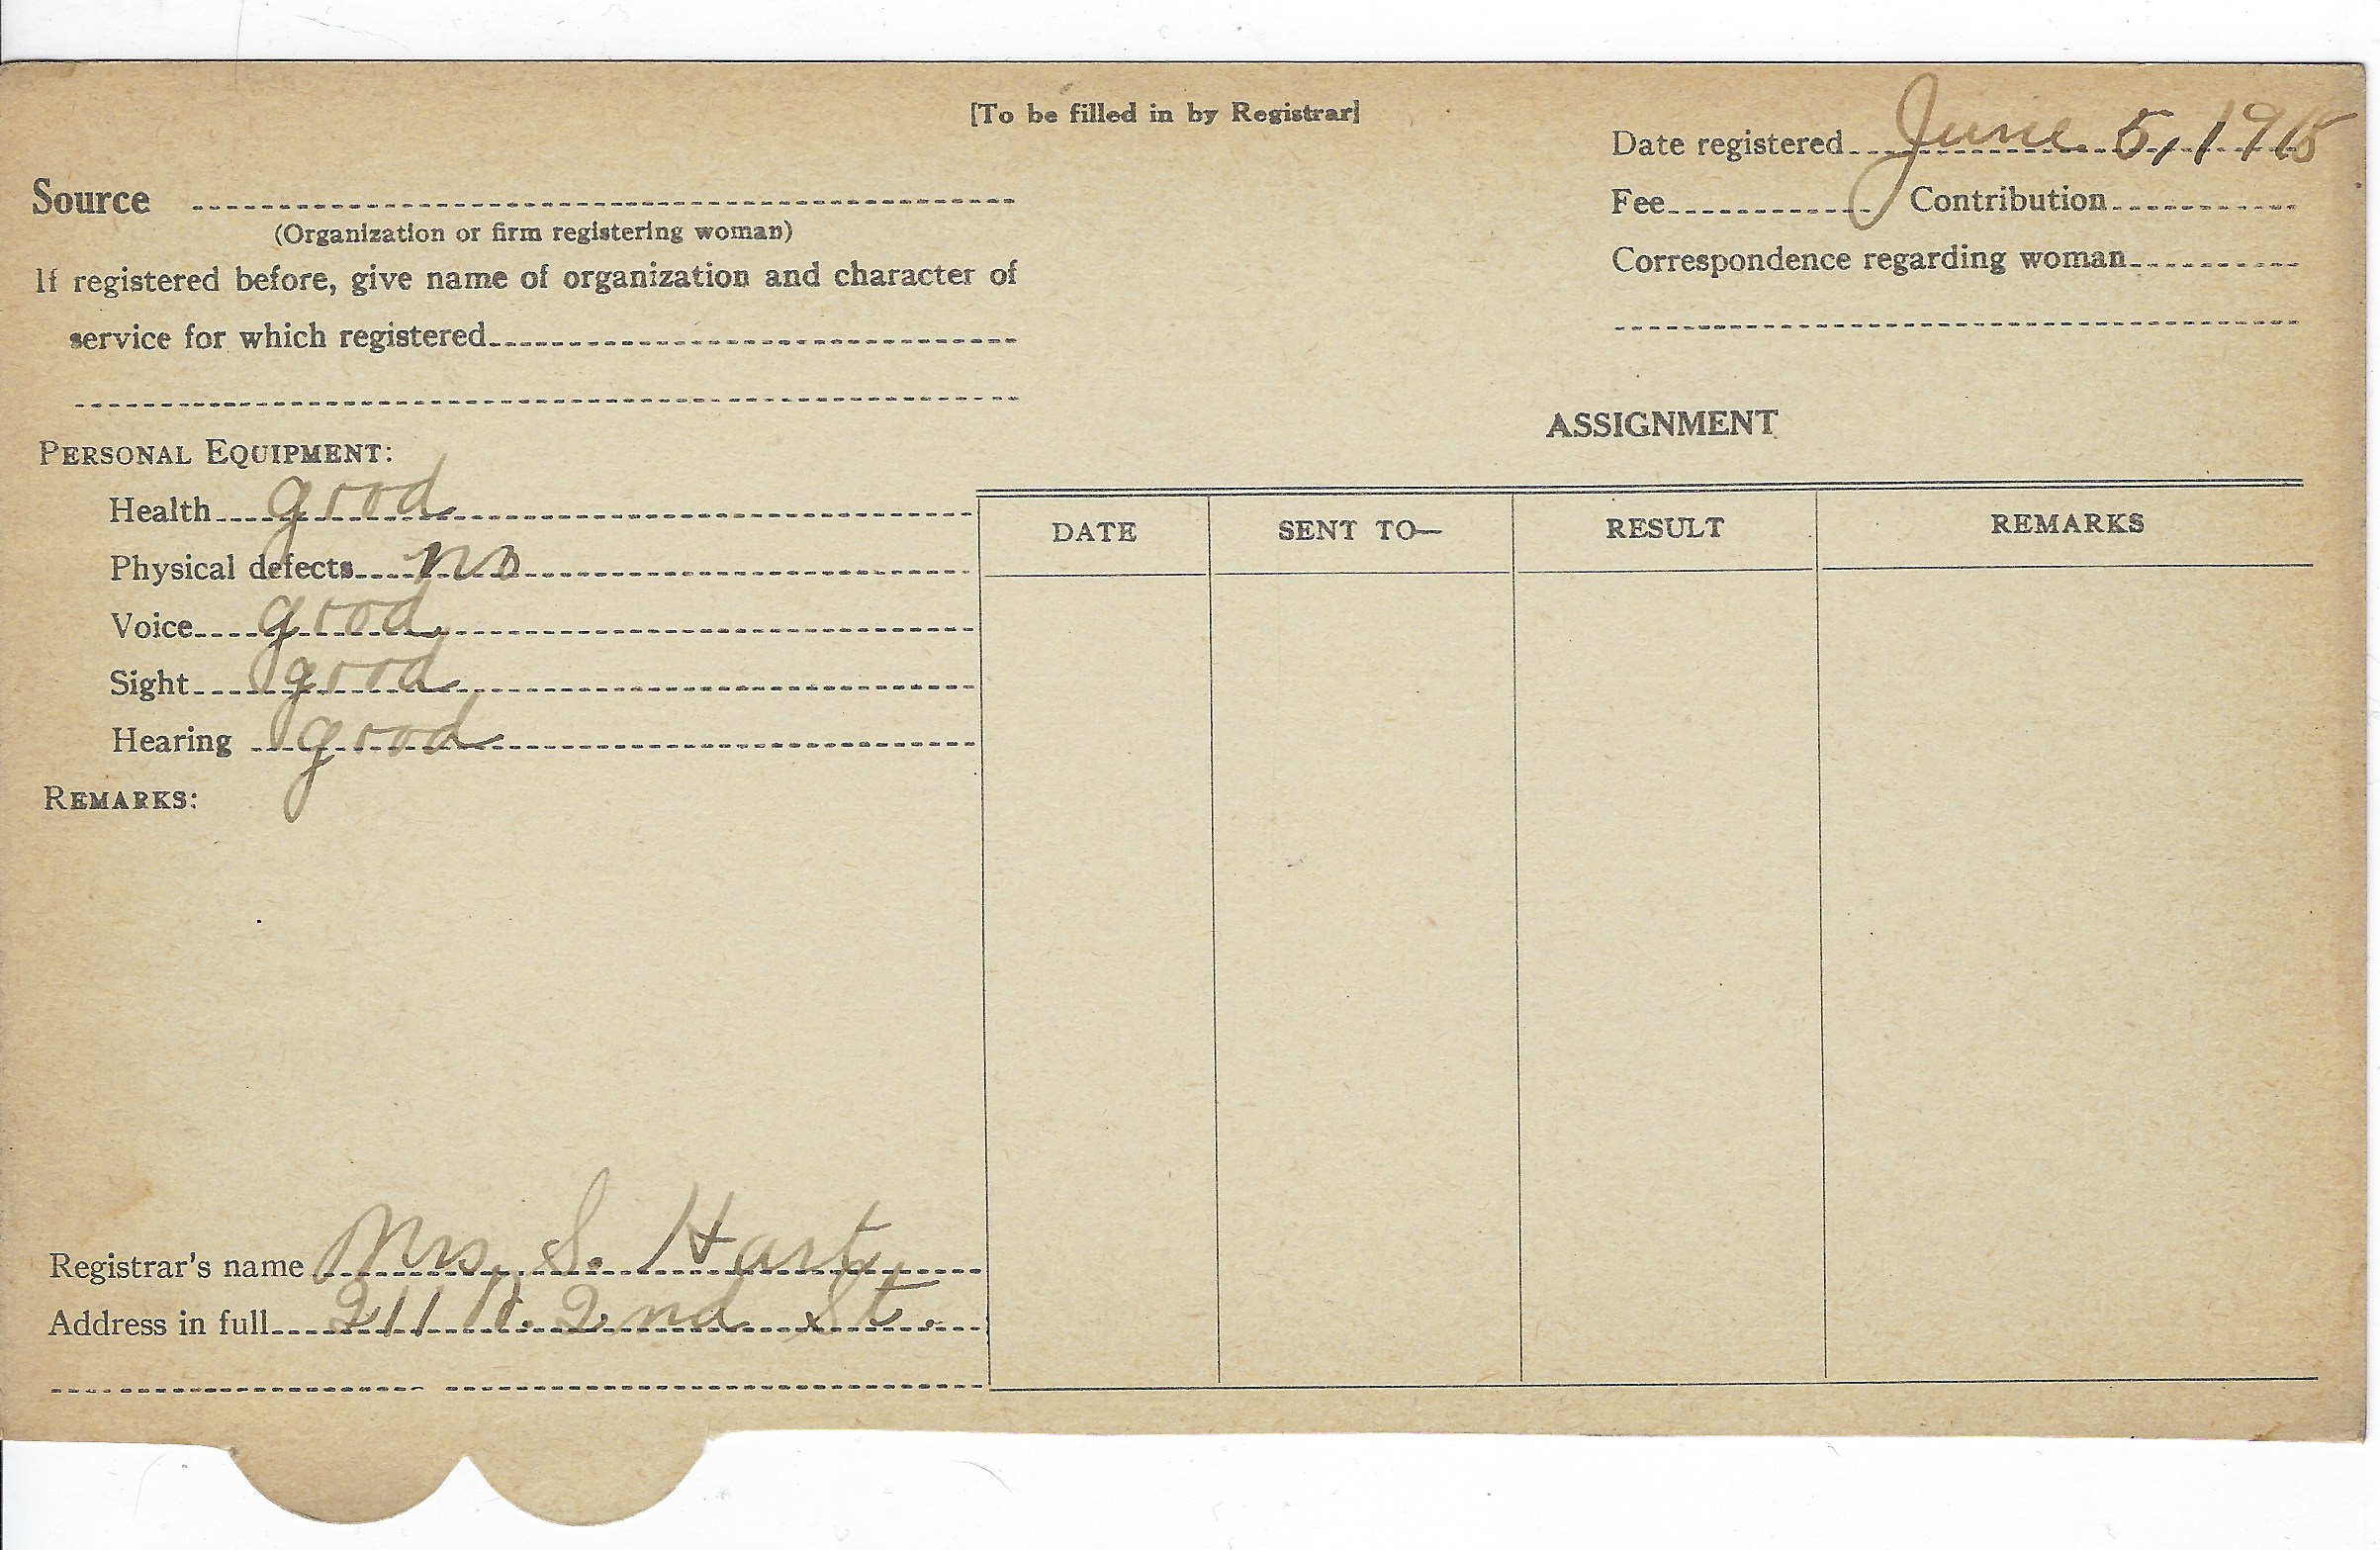 [To be filled in by Registrar]
Date registered June 5, 1918
Source
(Organization or firm registering woman)
Fee Contribution
If registered before, give name of organization and character of
service for which registered
Correspondence regarding woman
ASSIGNMENT
PERSONAL EQUIPMENT:
Health good
Physical defects no
Voice good
Sight good
Hearing good
REMARKS:
DATE SENT TO— RESULT REMARKS
Registrar's name Mrs. S. Hart
Address in full 211 N. 2nd St.